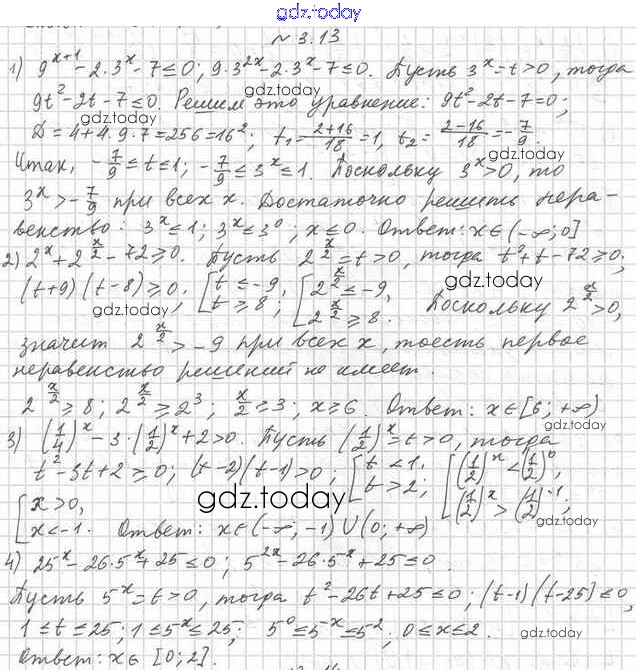 gdz.today
№ 3.13
1) 9^{x+1} - 2·3^x - 7 ≤ 0; 9·3^{2x} - 2·3^x - 7 ≤ 0. Пусть 3^x = t > 0, тогда
9t² - 2t - 7 ≤ 0. Решим это уравнение: 9t² - 2t - 7 = 0;
gdz.today
D = 4 + 4·9·7 = 256 = 16²; t₁ = (2+16)/18 = 1, t₂ = (2-16)/18 = -7/9.
gdz.today
Итак, -7/9 ≤ t ≤ 1; -7/9 ≤ 3^x ≤ 1. Поскольку 3^x > 0, то
3^x > -7/9 при всех x. Достаточно решить нера-
gdz.today
венство: 3^x ≤ 1; 3^x ≤ 3^0; x ≤ 0. Ответ: x ∈ (-∞; 0]
2) 2^x + 2^{x/2} - 72 ≥ 0. Пусть 2^{x/2} = t > 0, тогда t² + t - 72 ≥ 0;
gdz.today
(t+9)(t-8) ≥ 0; [t ≤ -9, t ≥ 8; [2^{x/2} ≤ -9, 2^{x/2} ≥ 8. Поскольку 2^{x/2} > 0,
gdz.today
gdz.today
значит 2^{x/2} > -9 при всех x, тоесть первое
неравенство решений не имеет.
2^{x/2} ≥ 8; 2^{x/2} ≥ 2³; x/2 ≥ 3; x ≥ 6. Ответ: x ∈ [6; +∞)
3) (1/4)^x - 3·(1/2)^x + 2 > 0. Пусть (1/2)^x = t > 0, тогда
gdz.today
t² - 3t + 2 ≥ 0; (t-2)(t-1) > 0; [t < 1, t > 2; [(1/2)^x < (1/2)^0, (1/2)^x > (1/2)^{-1};
gdz.today
gdz.today
[x > 0, x < -1. Ответ: x ∈ (-∞; -1) ∪ (0; +∞)
4) 25^x - 26·5^x + 25 ≤ 0; 5^{2x} - 26·5^x + 25 ≤ 0.
gdz.today
Пусть 5^x = t > 0, тогда t² - 26t + 25 ≤ 0; (t-1)(t-25) ≤ 0,
1 ≤ t ≤ 25; 1 ≤ 5^x ≤ 25; 5^0 ≤ 5^x ≤ 5^2; 0 ≤ x ≤ 2.
gdz.today
Ответ: x ∈ [0; 2].